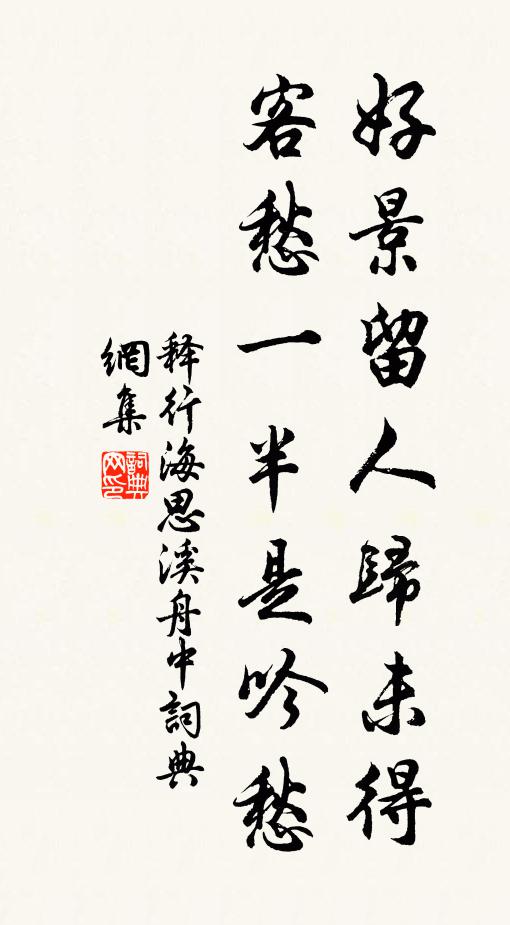 好景留人歸未得
客愁一半是吟愁
释行海思溪舟中詞典
網集
詞典
网印